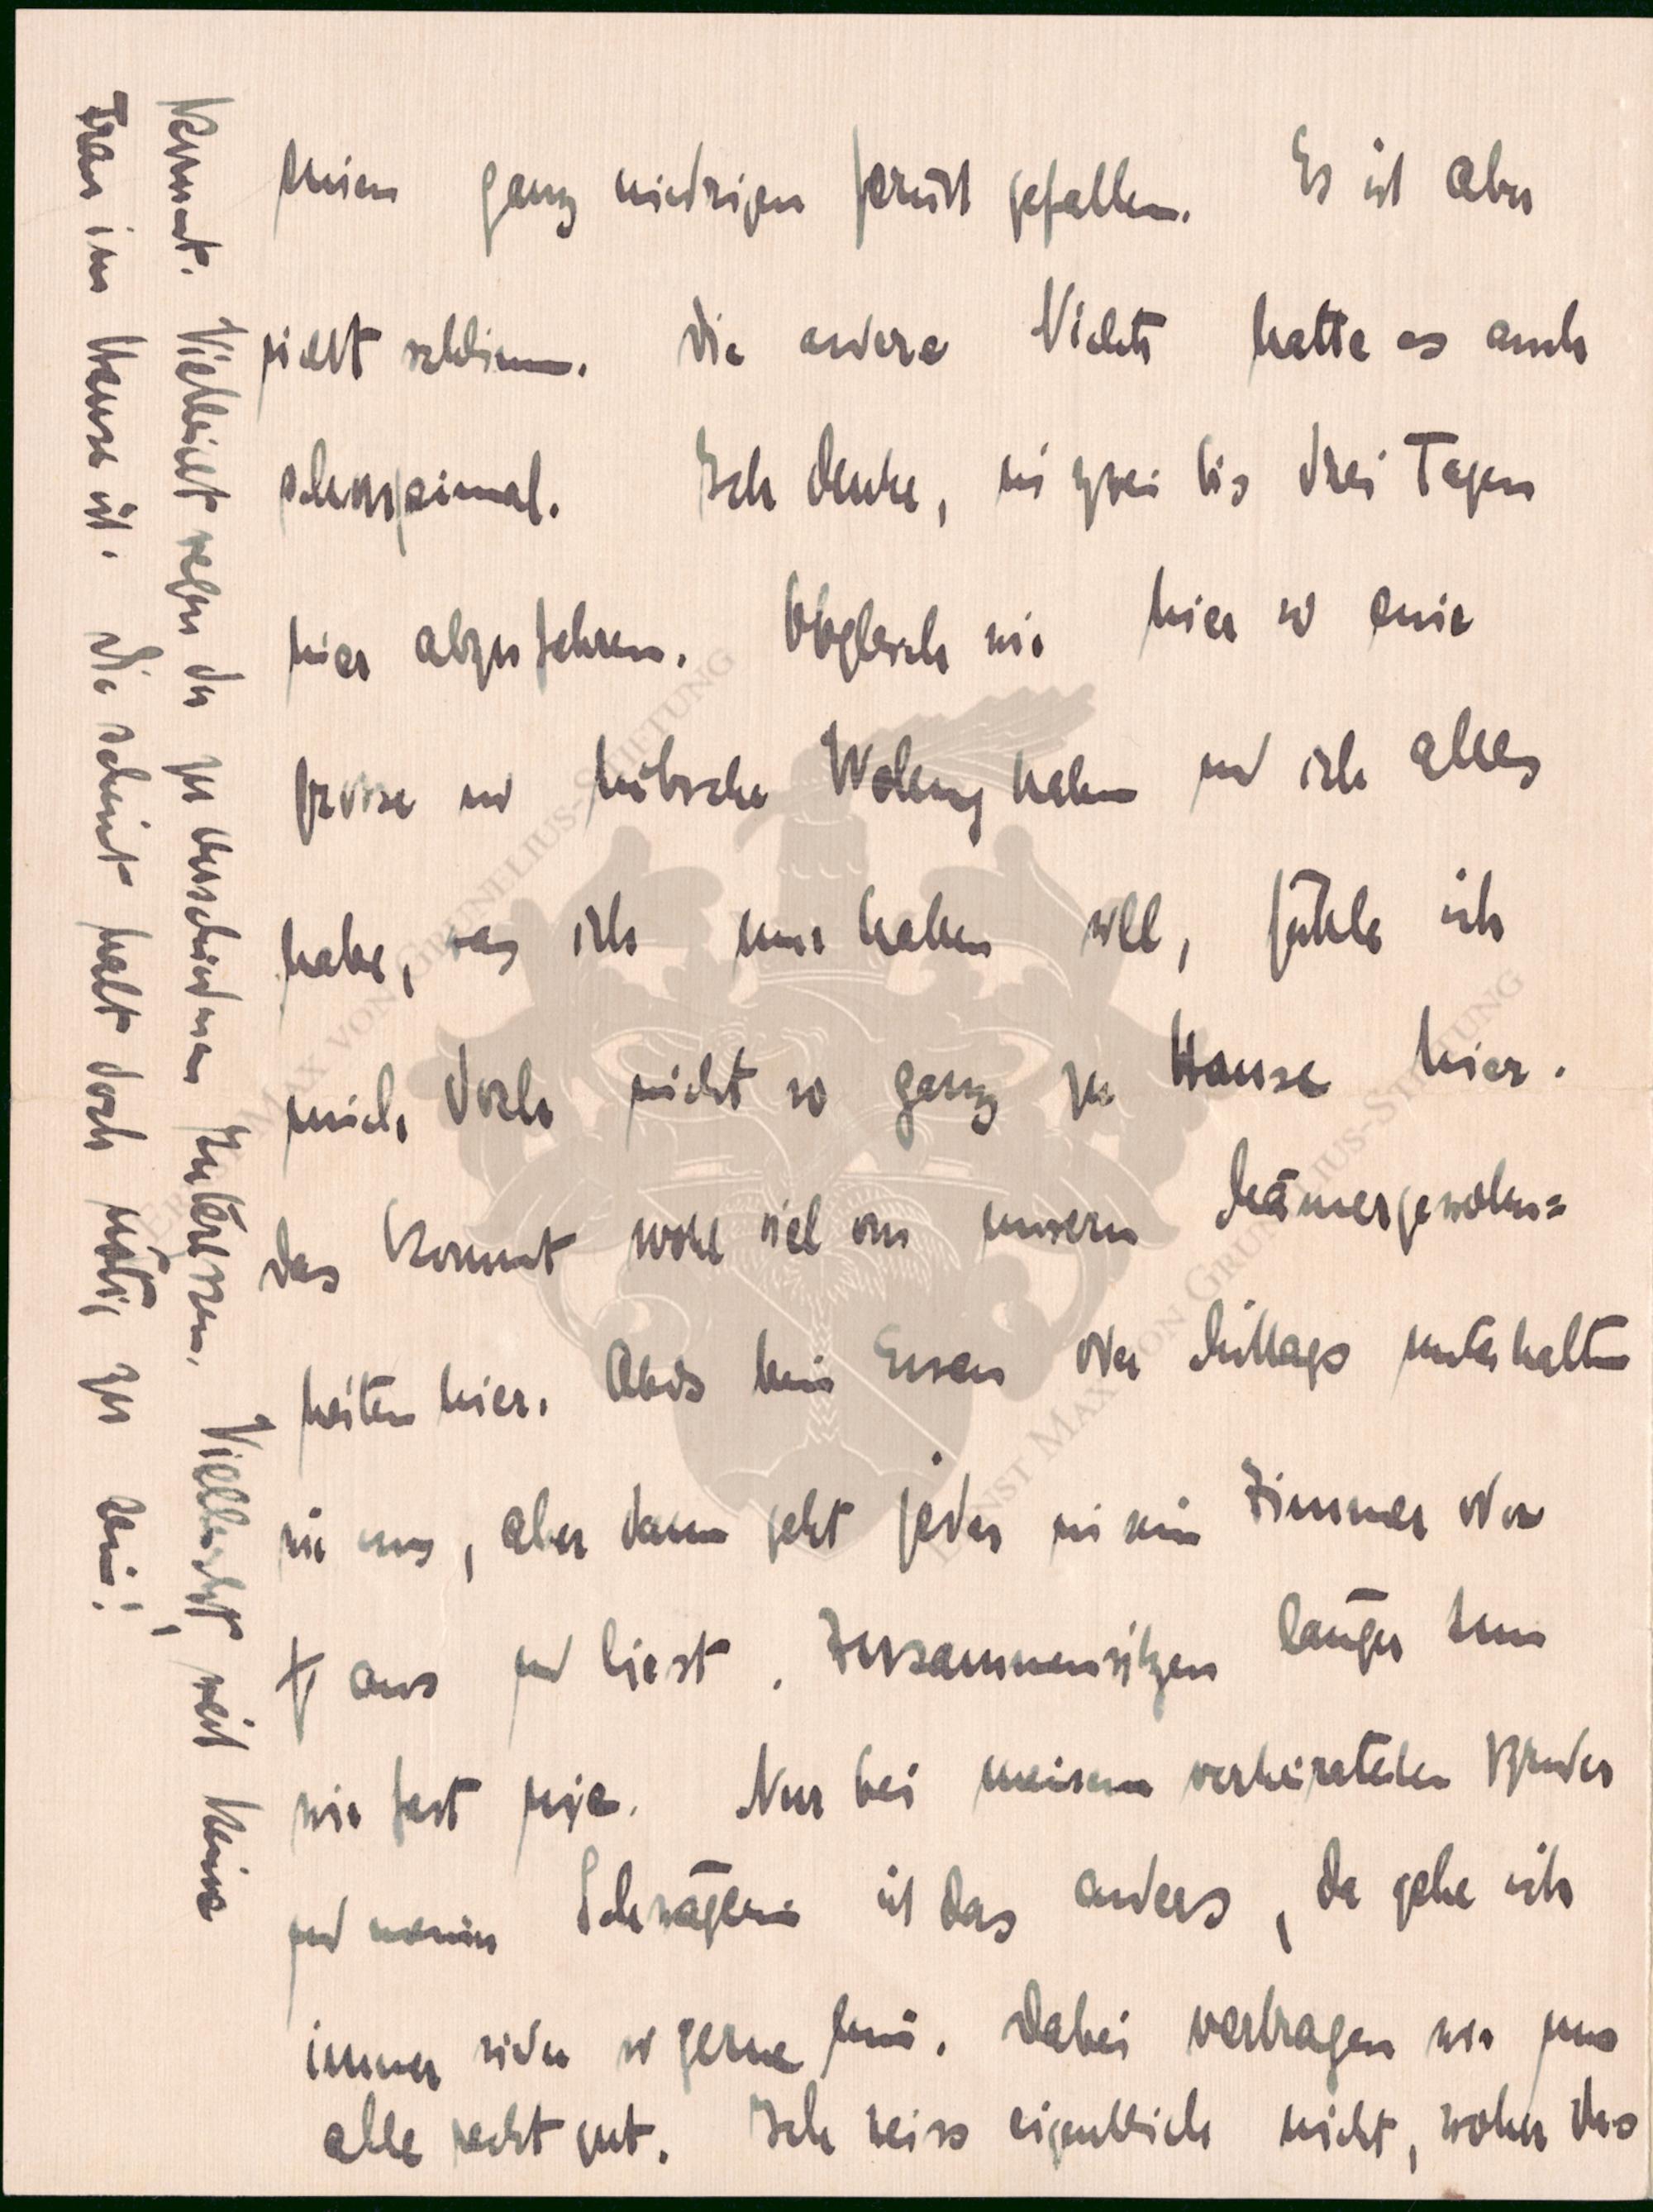 einem ganz niedrigen Gerüst gefallen. Es ist aber
nicht schlimm. Die andere Nichte hatte es auch
schon einmal. Ich denke, in zwei bis drei Tagen
hier abzufahren. Obgleich wir hier so eine
grosse und hübsche Wohnung haben und ich alles
habe, was ich nur haben will, fühle ich
mich doch nicht so ganz zu Hause hier.
Das kommt wohl viel von unsern Männergewohn=
heiten hier. Abds beim Essen oder Mittags unterhalten
wir uns, aber dann geht jeder in sein Zimmer oder
aus und liest. Zusammensitzen länger tun
wir fast nie. Nur bei meinem verheirateten Bruder
und meiner Schwägerin ist das anders, da gehe ich
immer wieder so gerne hin. Dabei vertragen wir uns
alle recht gut. Ich weiss eigentlich nicht, woher das
kommt. Vielleicht wegen der zu verschiedenen Interessen. Vielleicht, weil keine
Frau im Hause ist. Die scheint halt doch nötig zu sein!
ERNST MAX VON GRUNELIUS-STIFTUNG
ERNST MAX VON GRUNELIUS-STIFTUNG